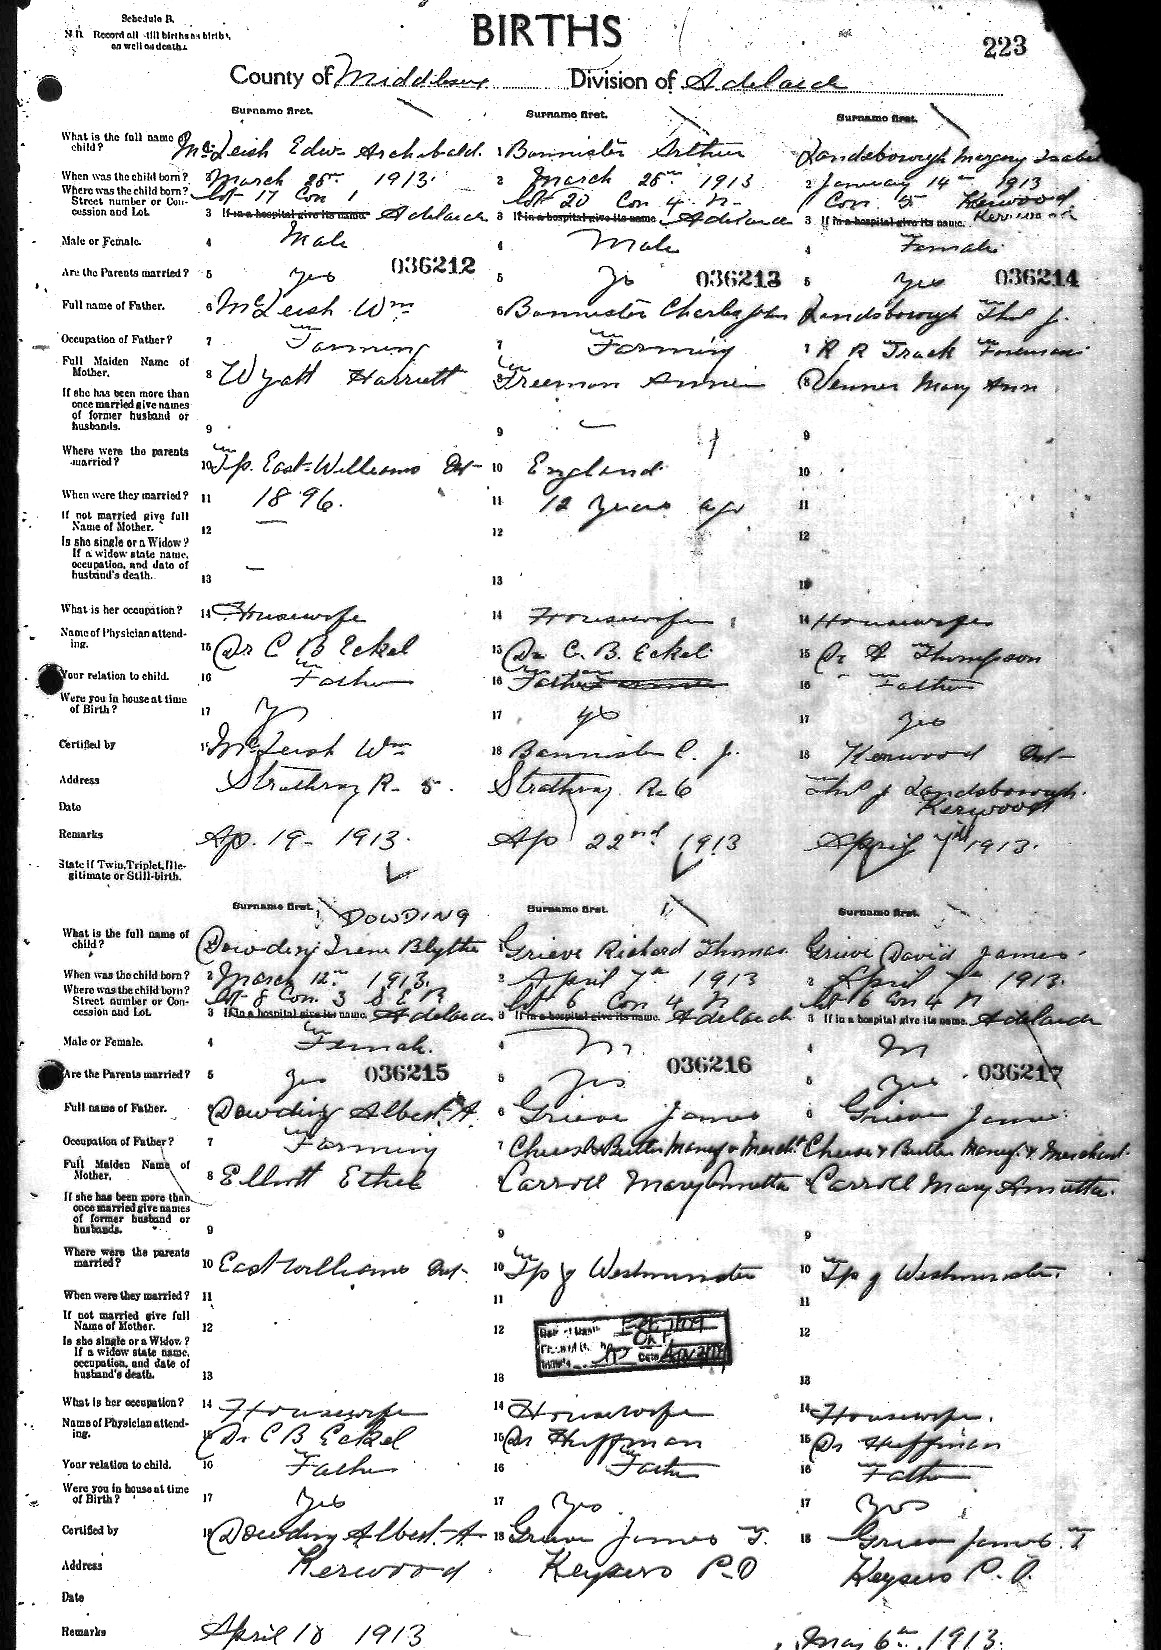 Schedule B.
N.B. Record all still births as births, as well as deaths.
BIRTHS
223
County of Middlesex Division of Adelaide
Surname first. Surname first. Surname first.
What is the full name of child? McLeish Edw. Archibald. 1 Bannister Arthur Landsborough Margery Isabel
When was the child born? 2 March 28th 1913. 2 March 28th 1913 2 January 14th 1913
Where was the child born? Street number or Concession and Lot. Lot 17 Con 1 Lot 20 Con 4 N. Con 5 Kerwood
3 If in a hospital give its name. Adelaide 3 If in a hospital give its name. Adelaide 3 If in a hospital give its name. Kerwood
Male or Female. 4 Male 4 Male 4 Female
036212 036213 036214
Are the Parents married? 5 Yes 5 Yes 5 Yes
Full name of Father. 6 McLeish Wm 6 Bannister Charles John Landsborough Thos J.
Occupation of Father? 7 Farming 7 Farming 7 R R Track Foreman
Full Maiden Name of Mother. 8 Wyatt Harriett 8 Freeman Annie 8 Venner Mary Ann
If she has been more than once married give names of former husband or husbands. 9 — 9 — 9
Where were the parents married? 10 Tp. East Williams Ont 10 England 10
When were they married? 11 1896. 11 12 years ago 11
If not married give full Name of Mother. 12 — 12 12
Is she single or a Widow? If a widow state name, occupation, and date of husband's death. 13 — 13 13
What is her occupation? 14 Housewife 14 Housewife 14 Housewife
Name of Physician attending. 15 Dr C B Eckel 15 Dr C. B. Eckel 15 Dr Thompson
Your relation to child. 16 Father 16 Father 16 Father
Were you in house at time of Birth? 17 Yes 17 Yes 17 Yes
Certified by 18 McLeish Wm 18 Bannister C. J. 18 Kerwood Ont
Address Strathroy R. 5. Strathroy R. 6 Thos J Landsborough.
Date Kerwood
Remarks Ap. 19 - 1913. Ap 22nd 1913 April 7th 1913.
State if Twin, Triplet, Illegitimate or Still-birth.
Surname first. DOWDING Surname first. Surname first.
What is the full name of child? Dowding Irene Blythe Grieve Richard Thomas Grieve David James
When was the child born? 2 March 12th 1913. 2 April 7th 1913 2 April 7th 1913.
Where was the child born? Street number or Concession and Lot. Lot 8 Con. 3 S.E.R. Lot 6 Con 4 N Lot 6 Con 4 N
3 If in a hospital give its name. Adelaide 3 If in a hospital give its name. Adelaide 3 If in a hospital give its name. Adelaide
Male or Female. 4 Female. 4 M. 4 M
036215 036216 036217
Are the Parents married? 5 Yes 5 Yes 5 Yes
Full name of Father. Dowding Albert A. 6 Grieve James 6 Grieve James
Occupation of Father? 7 Farming 7 Cheese & Butter Manf'g & Mercht Cheese & Butter Manf'g. & Merchant.
Full Maiden Name of Mother. 8 Elliott Ethel Carroll Mary Annetta Carroll Mary Annetta.
If she has been more than once married give names of former husband or husbands. 9 9 9
Where were the parents married? 10 East Williams Ont. 10 Tp of Westminster 10 Tp of Westminster.
When were they married? 11 11 11
If not married give full Name of Mother. 12 12 12
Is she single or a Widow? If a widow state name, occupation, and date of husband's death. 13 13 13
What is her occupation? 14 Housewife 14 Housewife 14 Housewife.
Name of Physician attending. 15 Dr C B Eckel 15 Dr Huffman 15 Dr Huffman
Your relation to child. 16 Father 16 Father 16 Father
Were you in house at time of Birth? 17 Yes 17 Yes. 17 Yes
Certified by 18 Dowding Albert A 18 Grieve James T. 18 Grieve James T
Address Kerwood Keysers P.O Keysers P.O.
Date
Remarks April 18 1913 May 6th 1913.